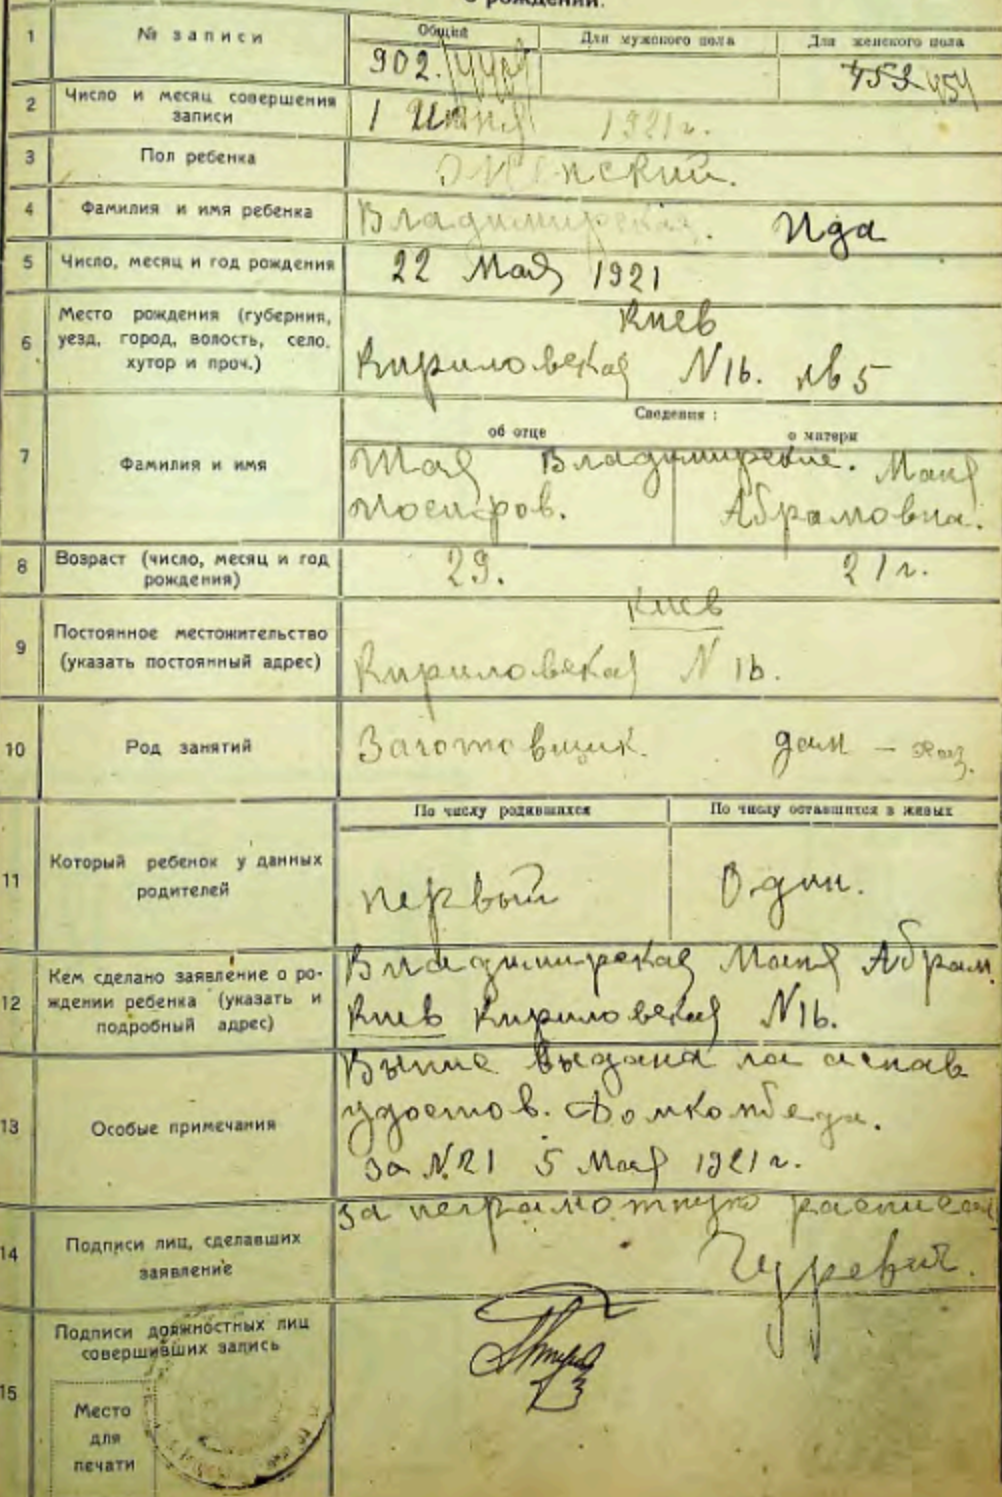 о рождении.
1 № записи Общий Для мужского пола Для женского пола
902. 453 454
2 Число и месяц совершения
записи
1 Июня 1921 г.
3 Пол ребенка Женский.
4 Фамилия и имя ребенка Владимирская. Ида
5 Число, месяц и год рождения 22 Мая 1921
6 Место рождения (губерния,
уезд, город, волость, село,
хутор и проч.)
Киев
Кириловская N 16. кв 5
7 Фамилия и имя
Сведения:
об отце о матери
Шая Владимирские. Маня
Иосифов. Абрамовна.
8 Возраст (число, месяц и год
рождения)
29. 21 г.
9 Постоянное местожительство
(указать постоянный адрес)
Киев
Кириловская N 16.
10 Род занятий Заготовщик. дом — хоз.
11 Который ребенок у данных
родителей
По числу родившихся По числу оставшихся в живых
первый Один.
12 Кем сделано заявление о ро-
ждении ребенка (указать и
подробный адрес)
Владимирская Маня Абрам.
Киев Кириловская N 16.
13 Особые примечания
выдана на
удостов. Домкомбеда.
за N. 21 5 Мая 1921 г.
14 Подписи лиц, сделавших
заявление
за неграмотную расписал
Гуревич.
15 Подписи должностных лиц
совершивших запись
Место
для
печати